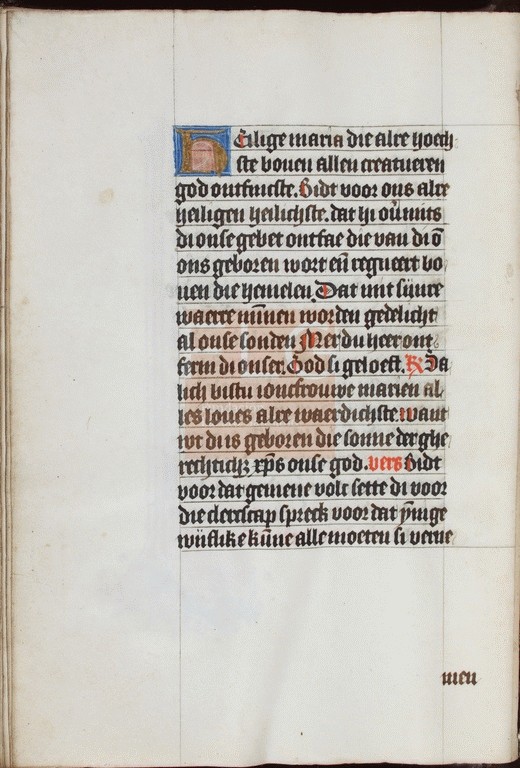 Heilige maria die alre hoech
ste bouen allen creatueren
god ontfincste. Bidt voor ons alre
heiligen heilichste. dat hi ou͞mits
di onse gebet ontfae die van di o͞
ons geboren wort en͞ regneert bo
uen die hemelen. Dat mit sijnre
waerre minnen worden gedelicht
al onse sonden Mer du heer ont
ferm di onser. God si geloeft. R Sa
lich bistu ioncfrouwe marien al
les loues alre waerdichste want
wt di is geboren die sonne der ghe
rechticht xp͞s onse god. vers Bidt
voor dat gemene volc sette di voor
die clercscap spreck voor dat ynnige
wijflike ku͞ne alle moeten si verne
men